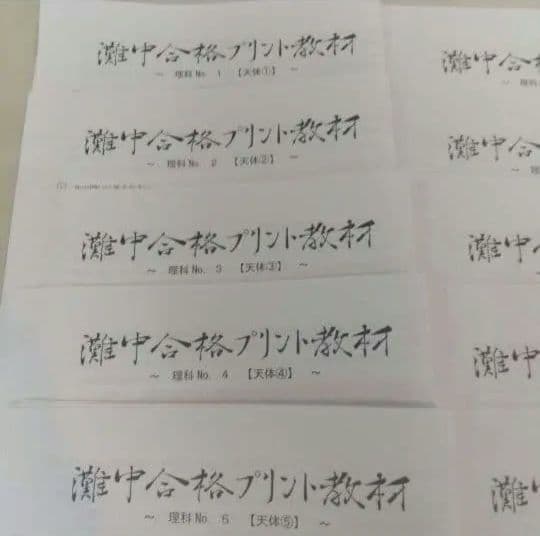 灘中合格プリント教材
～ 理科No. 1 【天体①】 ～
灘中合格プリント教材
～ 理科No. 2 【天体②】 ～
灘中合格プリント教材
～ 理科No. 3 【天体③】 ～
灘中合格プリント教材
～ 理科No. 4 【天体④】 ～
灘中合格プリント教材
～ 理科No. 5 【天体⑤】 ～
灘中合
灘中合
灘中
灘中
灘中